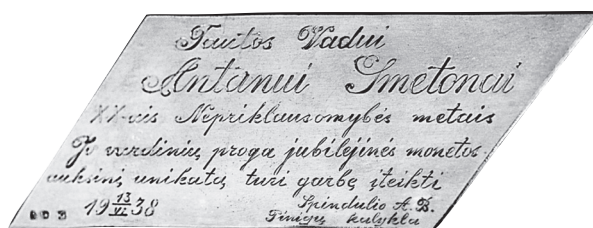 Tautos Vadui
Antanui Smetonai
XX-ais Nepriklausomybės metais
Jo vardinių proga jubilėjinės monetos
auksinį unikatą turi garbę įteikti
19 13/VI 38 Spindulio A. B.
Pinigų kalykla